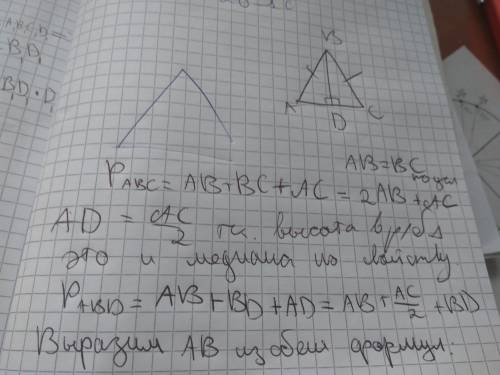 B₁D₁
B₁D₁ · D₁
B
A
C
D
AB = BC
по усл
P_ABC = AB + BC + AC = 2AB + AC
AD = AC/2 т.к. высота в р/б Δ
это и медиана по свойству
P_ABD = AB + BD + AD = AB + AC/2 + BD
Выразим AB из обеи формул: